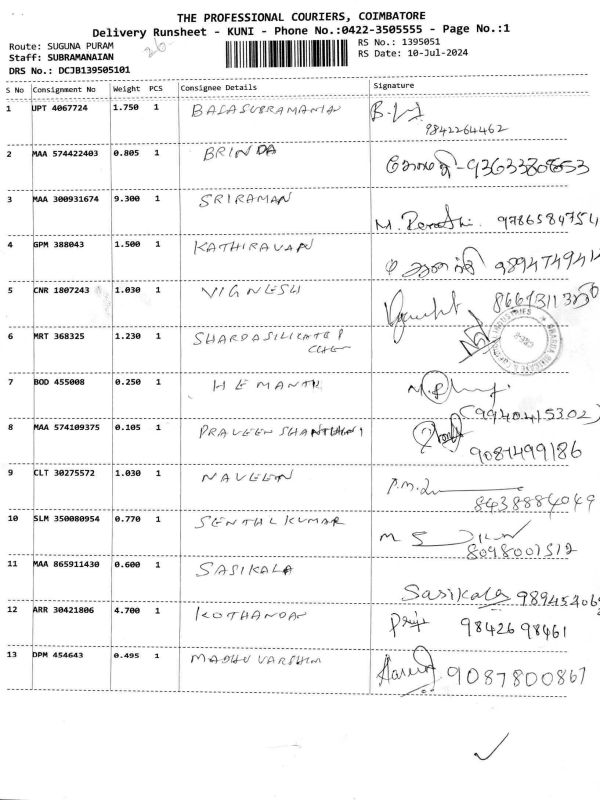 THE PROFESSIONAL COURIERS, COIMBATORE
Delivery Runsheet - KUNI - Phone No.:0422-3505555 - Page No.:1
Route: SUGUNA PURAM
RS No.: 1395051
Staff: SUBRAMANAIAN
RS Date: 10-Jul-2024
DRS No.: DCJB139505101
S No Consignment No Weight PCS Consignee Details Signature
1 UPT 4067724 1.750 1 BALASUBRAMANIAN
9842264462
2 MAA 574422403 0.805 1 BRINDA
3 MAA 300931674 9.300 1 SRIRAMAN
9786584754
4 GPM 388043 1.500 1 KATHIRAVAN
5 CNR 1807243 1.030 1 VIGNESH
6 MRT 368325 1.230 1 SHARDA
7 BOD 455008 0.250 1 HEMANTH
(9940415302)
8 MAA 574109375 0.105 1 PRAVEEN
9087499186
9 CLT 30275572 1.030 1 NAVEEN
8438884049
10 SLM 350080954 0.770 1 SENTHILKUMAR
8098001512
11 MAA 865911430 0.600 1 SASIKALA
Sasikala
12 ARR 30421806 4.700 1 KOTHANDAN
9842698461
13 DPM 454643 0.495 1 MADHU VARSHINI
9087800867